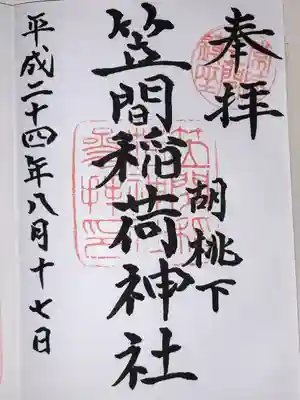 奉拝
胡桃下
笠間稲荷神社
平成二十四年八月十七日